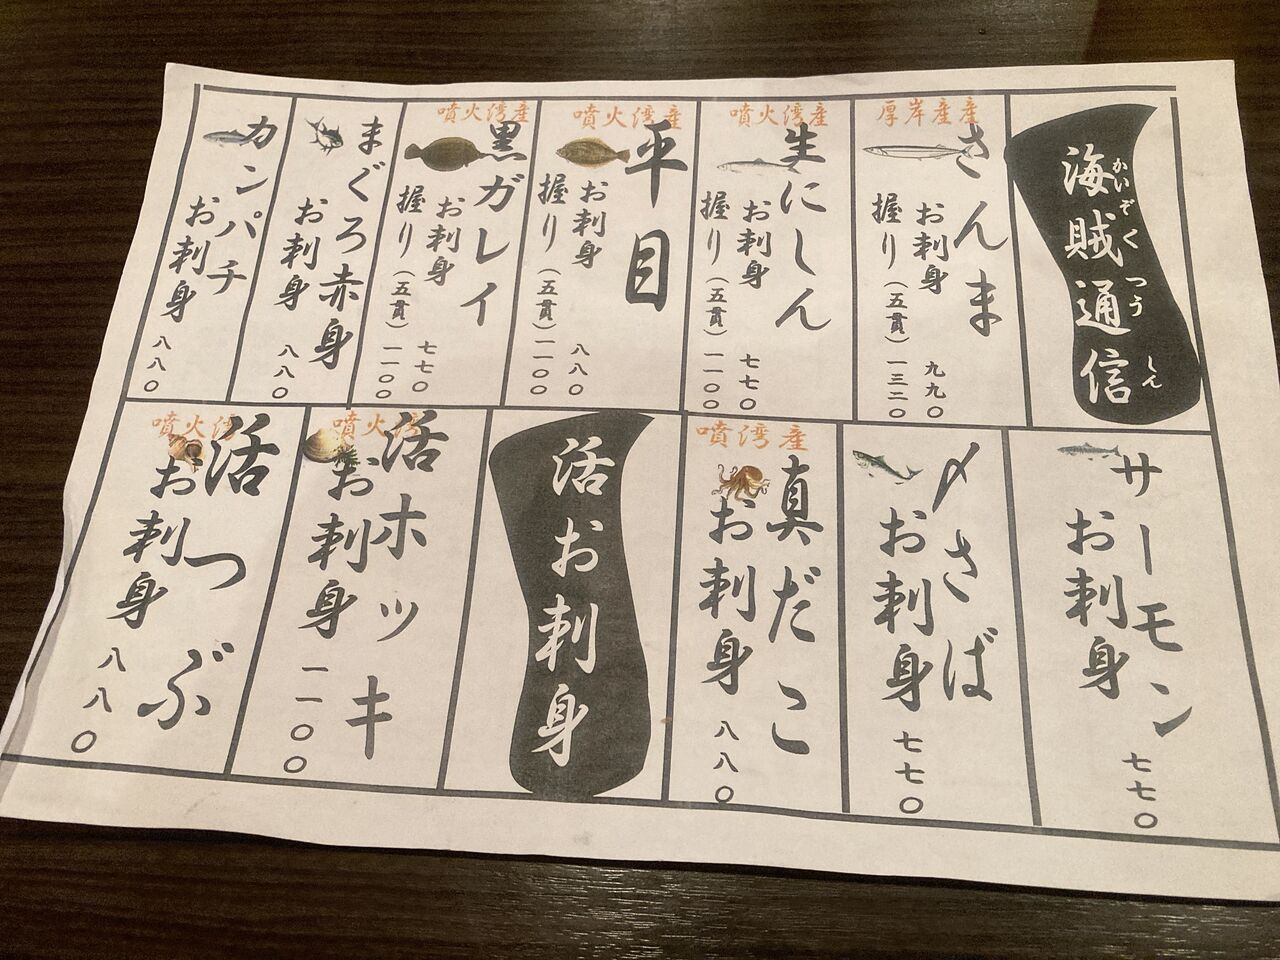 海賊通信
かいぞくつうしん
厚岸産産
さんま
お刺身 九九〇
握り(五貫)一三二〇
噴火湾産
生にしん
お刺身 七七〇
握り(五貫)一一〇〇
噴火湾産
平目
お刺身 八八〇
握り(五貫)一一〇〇
噴火湾産
黒ガレイ
お刺身 七七〇
握り(五貫)一一〇〇
まぐろ赤身
お刺身 八八〇
カンパチ
お刺身 八八〇
サーモン
お刺身 七七〇
〆さば
お刺身 七七〇
噴湾産
真だこ
お刺身 八八〇
活お刺身
噴火湾
活ホッキ
お刺身 一一〇〇
噴火湾
活つぶ
お刺身 八八〇